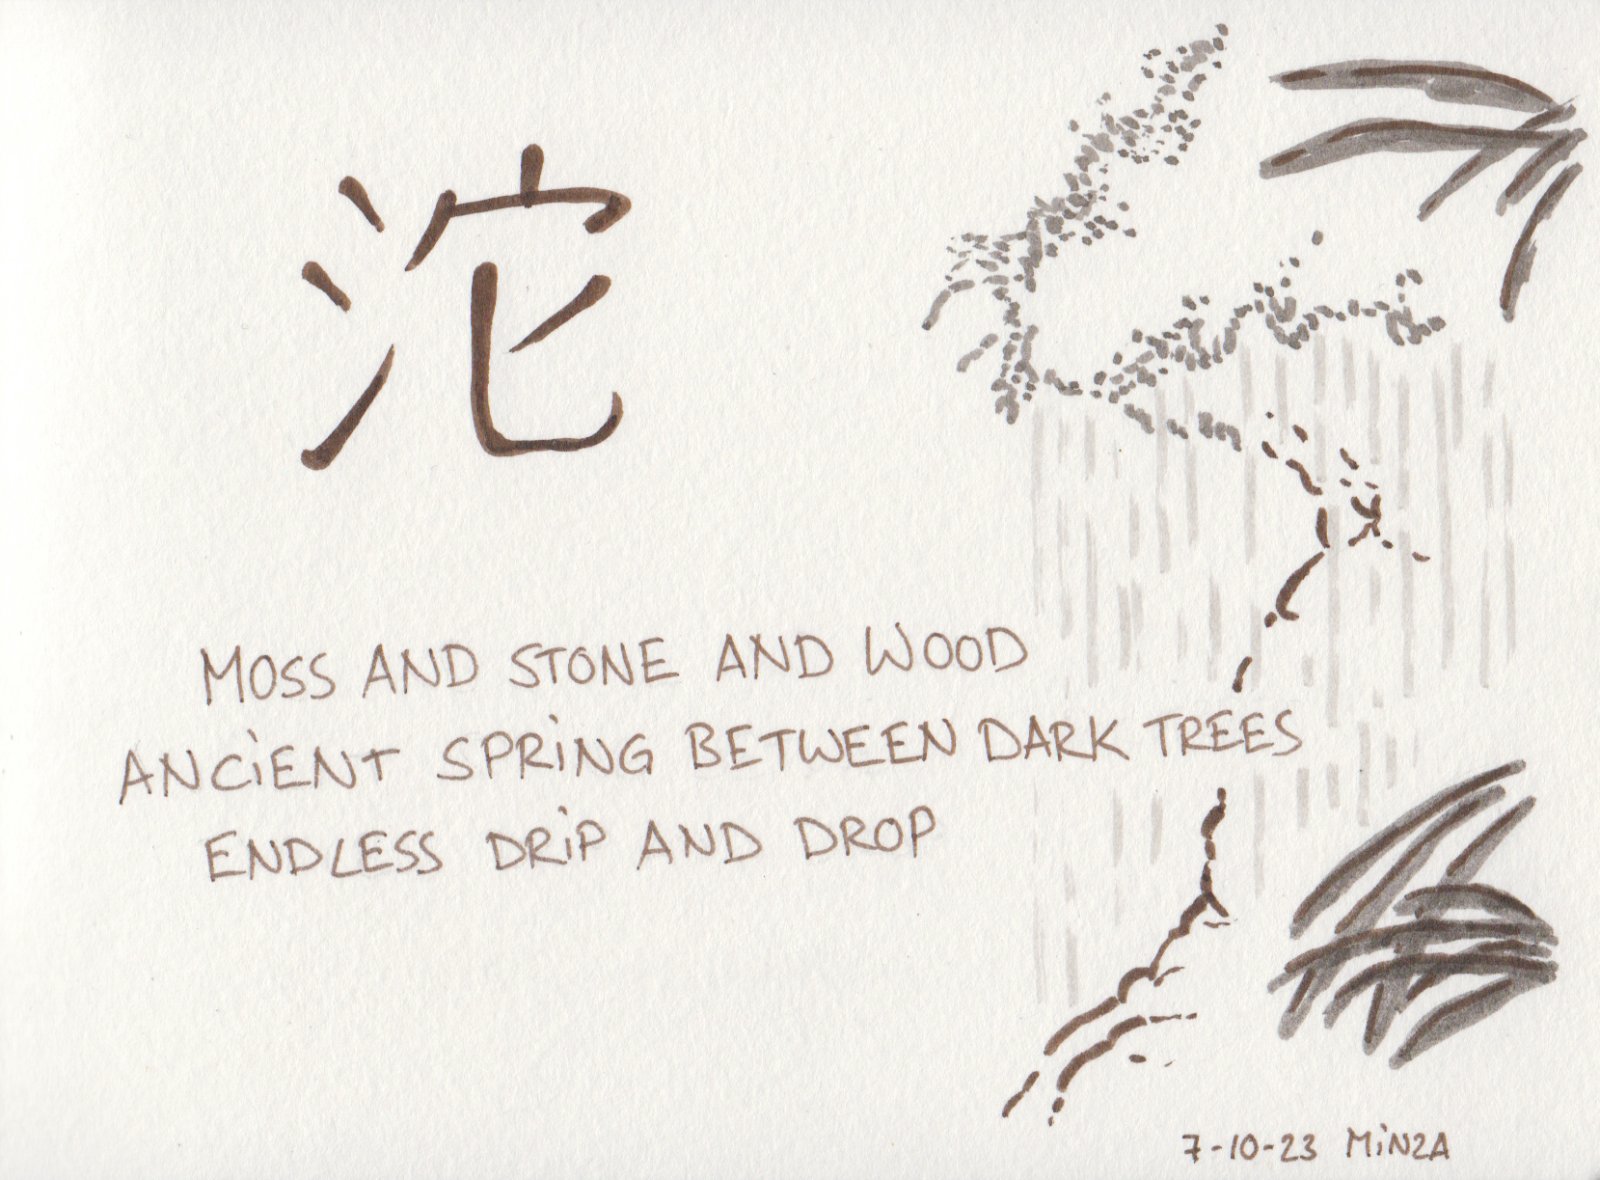 沱
MOSS AND STONE AND WOOD
ANCIENT SPRING BETWEEN DARK TREES
ENDLESS DRIP AND DROP
7-10-23 MINZA